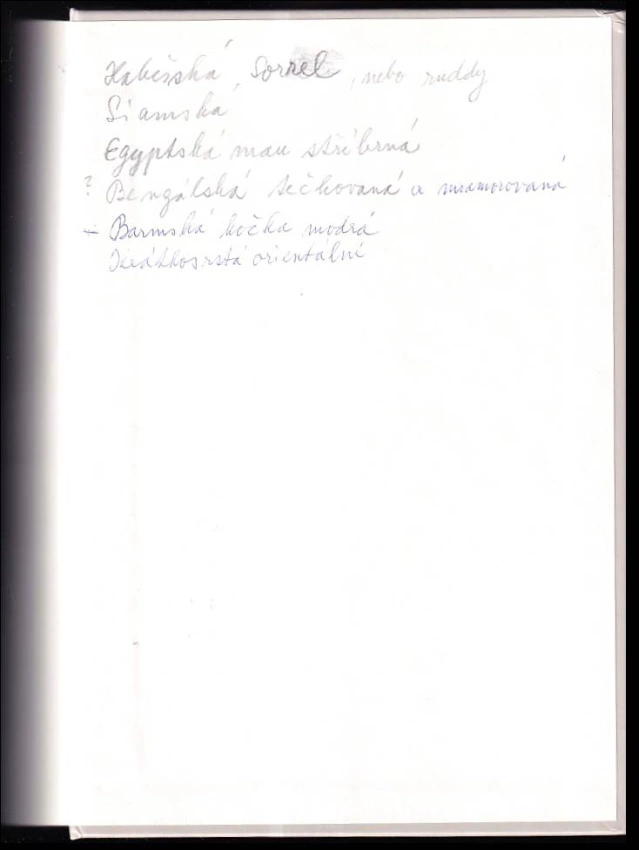 Habešská, Sorrel, nebo ruddy
Siamská
Egyptská mau stříbrná
? Bengálská tečkovaná a mramorovaná
– Barmská kočka modrá
Krátkosrstá orientální